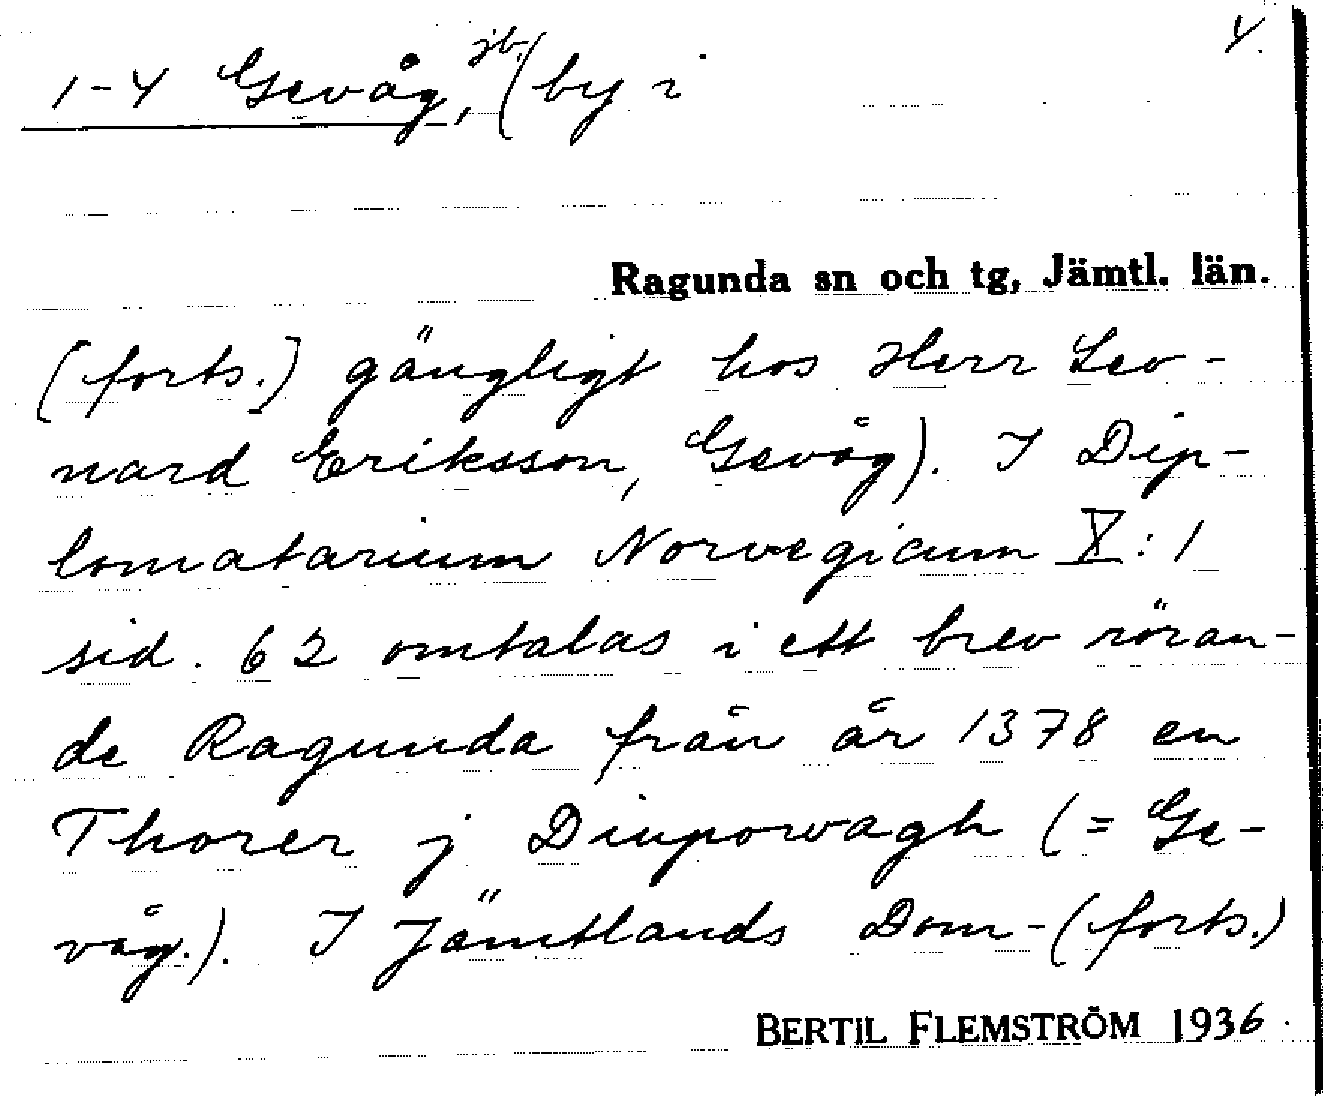 4.
1-4 Gevåg, jb. (by i
Ragunda sn och tg, Jämtl. län.
(forts.) gängligt hos Herr Leo-
nard Eriksson, Gevåg). I Dip-
lomatarium Norvegicum X:1
sid. 62 omtalas i ett brev röran-
de Ragunda från år 1378 en
Thorer j Diupowagh (= Ge-
våg.). I Jämtlands Dom- (forts.)
BERTIL FLEMSTRÖM 1936.